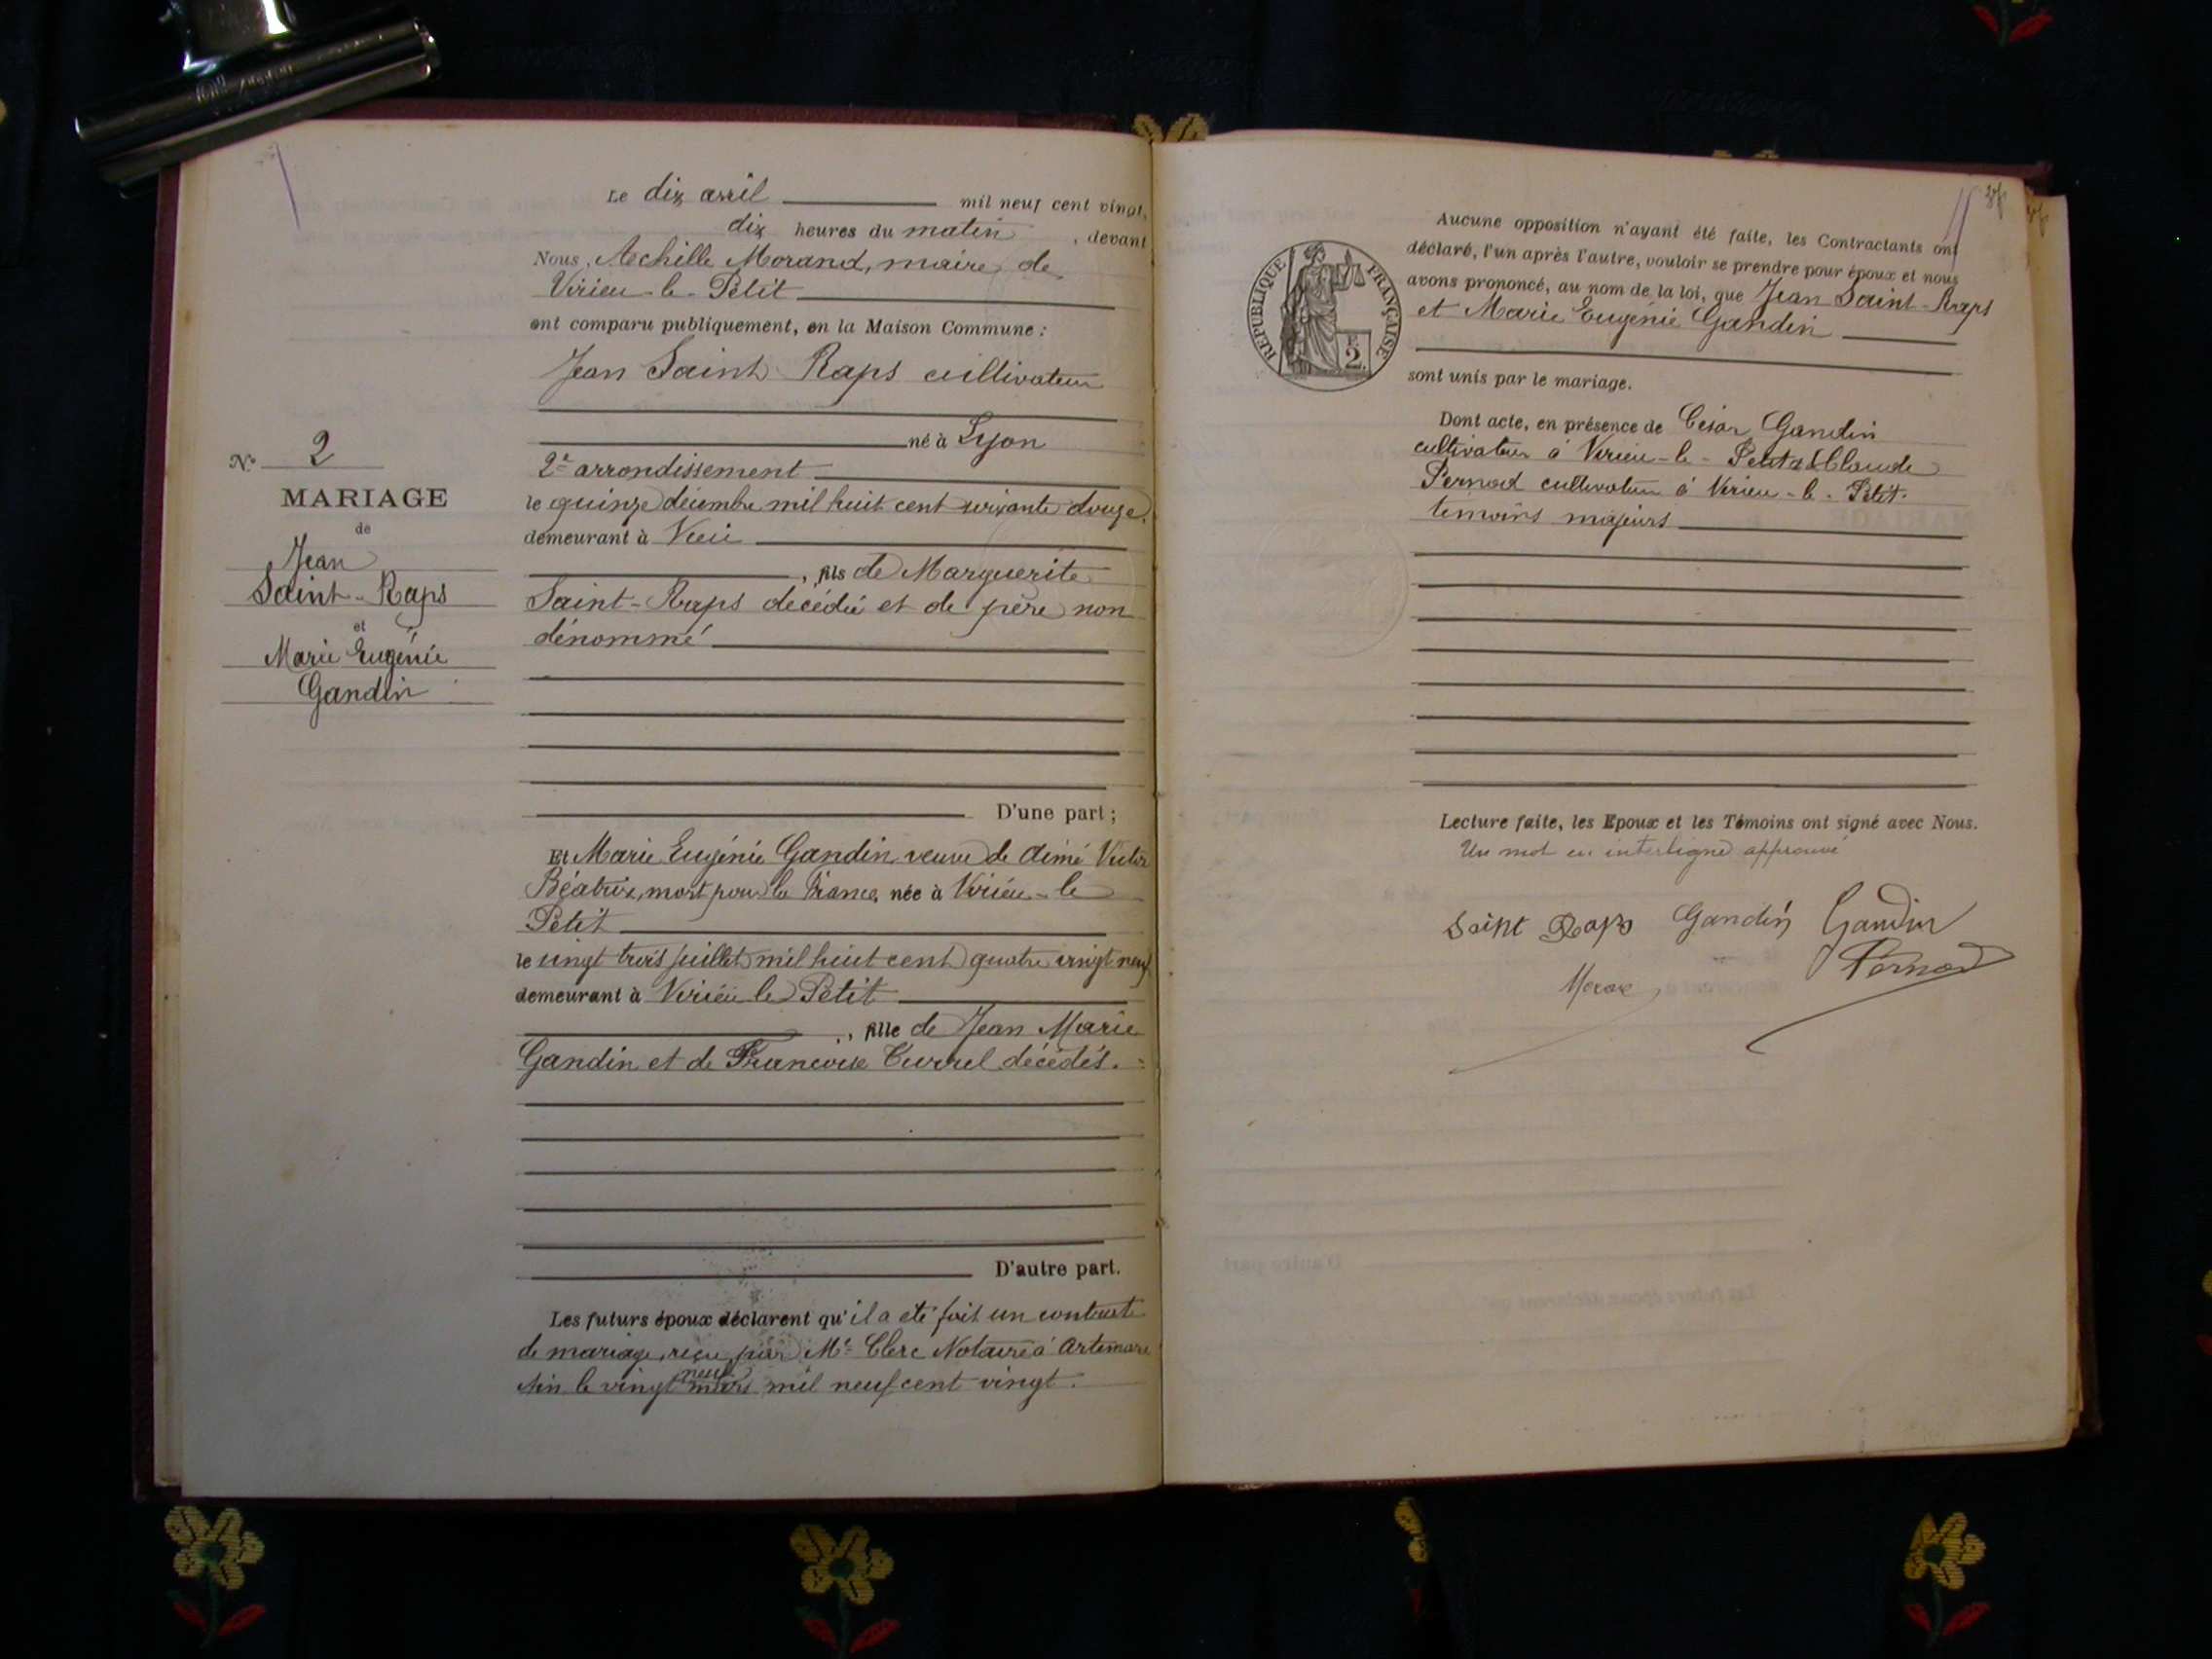 Le dix avril mil neuf cent vingt,
dix heures du matin, devant
Nous, Achille Morand, maire de
Virieu-le-Petit
ont comparu publiquement, en la Maison Commune :
Jean Saint Raps cultivateur
né à Lyon
2e arrondissement
le quinze décembre mil huit cent soixante douze
demeurant à
, fils de Marguerite
Saint-Raps décédée et de père non
dénommé
D'une part ;
N° 2
MARIAGE
de
Jean
Saint-Raps
et
Marie Eugénie
Gandin
Et Marie Eugénie Gandin veuve de Aimé Victor
Béatrix, mort pour la France, née à Virieu-le
Petit
le vingt trois juillet mil huit cent quatre vingt neuf
demeurant à Virieu le Petit
, fille de Jean Marie
Gandin et de Françoise décédés.
D'autre part.
Les futurs époux déclarent qu'il a été fait un contrat
de mariage reçu par Me Clerc Notaire à Artemare
Ain le vingt neuf mars mil neuf cent vingt.
Aucune opposition n'ayant été faite, les Contractants ont
déclaré, l'un après l'autre, vouloir se prendre pour époux et nous
avons prononcé, au nom de la loi, que Jean Saint-Raps
et Marie Eugénie Gandin
sont unis par le mariage.
RÉPUBLIQUE FRANÇAISE
2
Dont acte, en présence de César Gandin
cultivateur à Virieu-le-Petit et Claude
Pernod cultivateur à Virieu-le-Petit
témoins majeurs
Lecture faite, les Epoux et les Témoins ont signé avec Nous.
Un mot en interligne approuvé
Saint Raps Gandin Gandin
Pernod